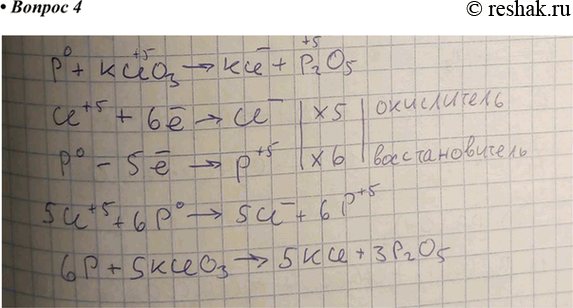 • Вопрос 4
© reshak.ru
P⁰ + KCl⁺⁵O₃ → KCl⁻ + P₂⁺⁵O₅
Cl⁺⁵ + 6ē → Cl⁻ | ×5 | окислитель
P⁰ - 5ē → P⁺⁵ | ×6 | восстановитель
5Cl⁺⁵ + 6P⁰ → 5Cl⁻ + 6P⁺⁵
6P + 5KClO₃ → 5KCl + 3P₂O₅